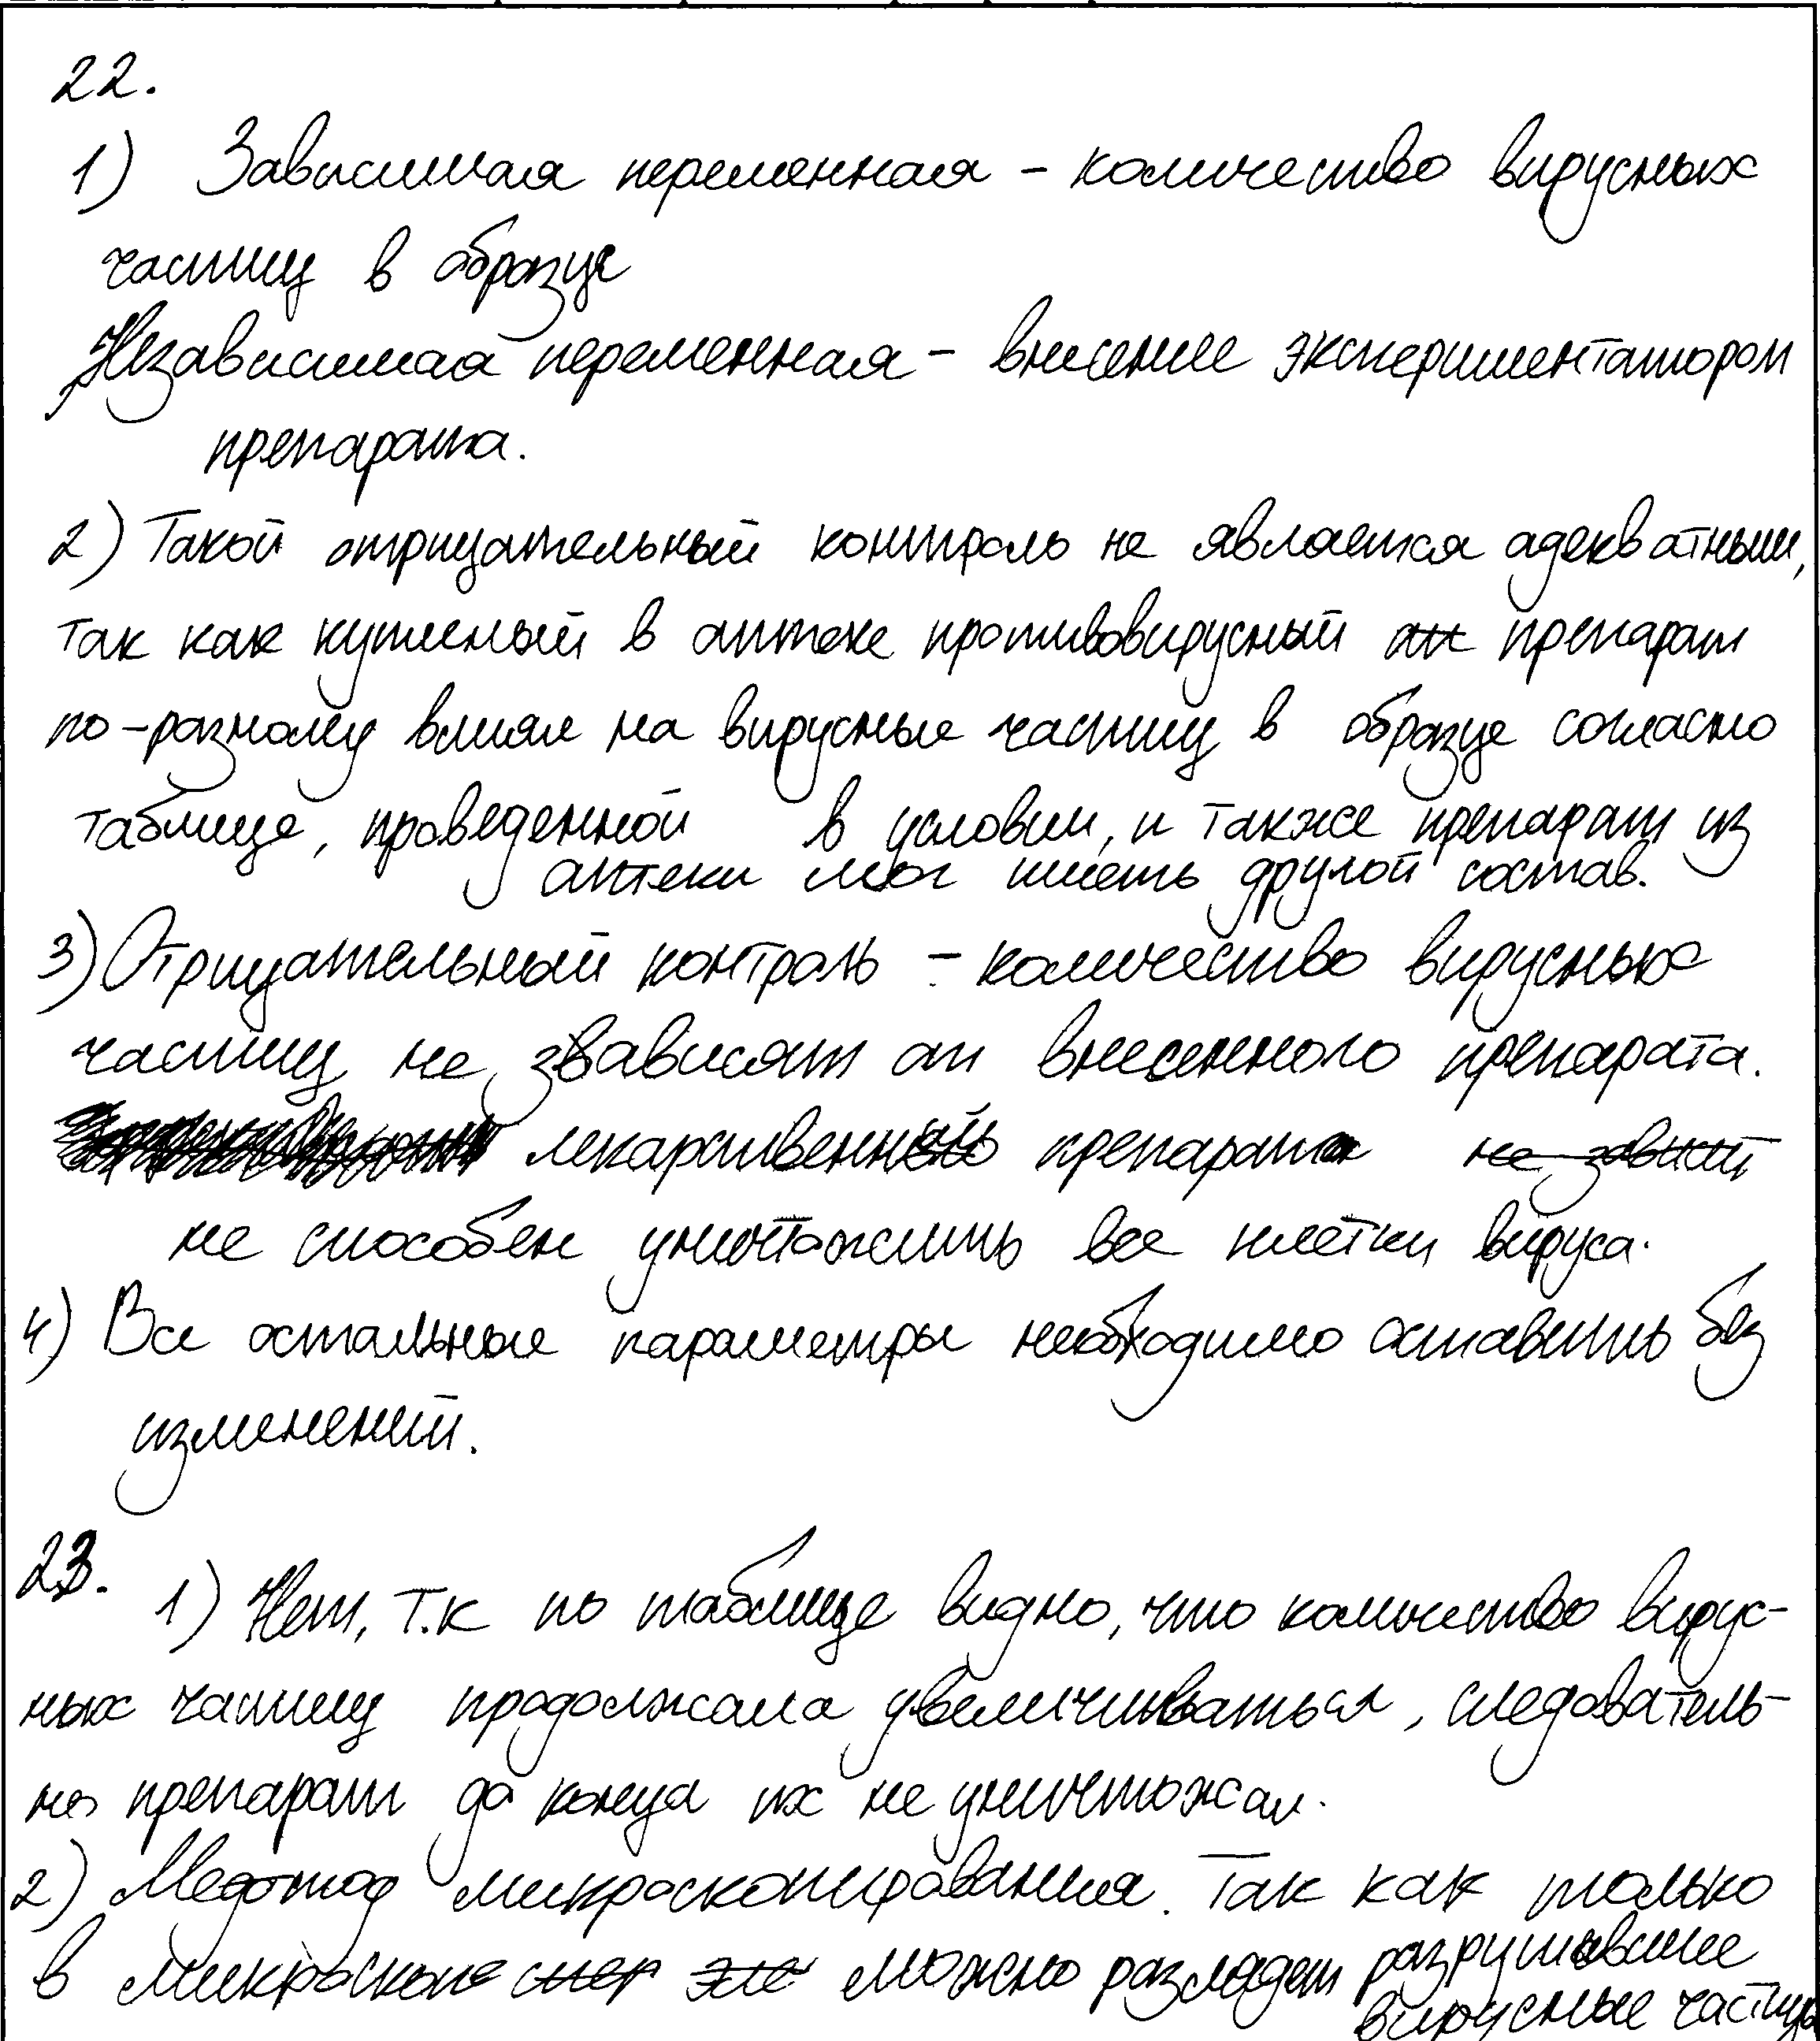 22.
1) Зависимая переменная - количество вирусных
частиц в образце
Независимая переменная - внесение экспериментатором
препарата.
2) Такой отрицательный контроль не является адекватным,
так как купленый в аптеке противовирусный препарат
по-разному влиял на вирусные частиц в образце согласно
таблице, проведенной в условии, и также препарат из
аптеки мог иметь другой состав.
3) Отрицательный контроль - количество вирусных
частиц не зависят от внесенного препарата.
лекарственный препарат не завит
не способен уничтожить все клетки вируса.
4) Все остальные параметры необходимо оставить без
изменений.
23.
1) Нет, т.к по таблице видно, что количество вирус-
ных частиц продолжала увеличиваться, следователь-
но препарат до конца их не уничтожал.
2) Медотод микроскопирования. Так как только
в микроскопе можно разглядет разрушавшие
вирусные частицы